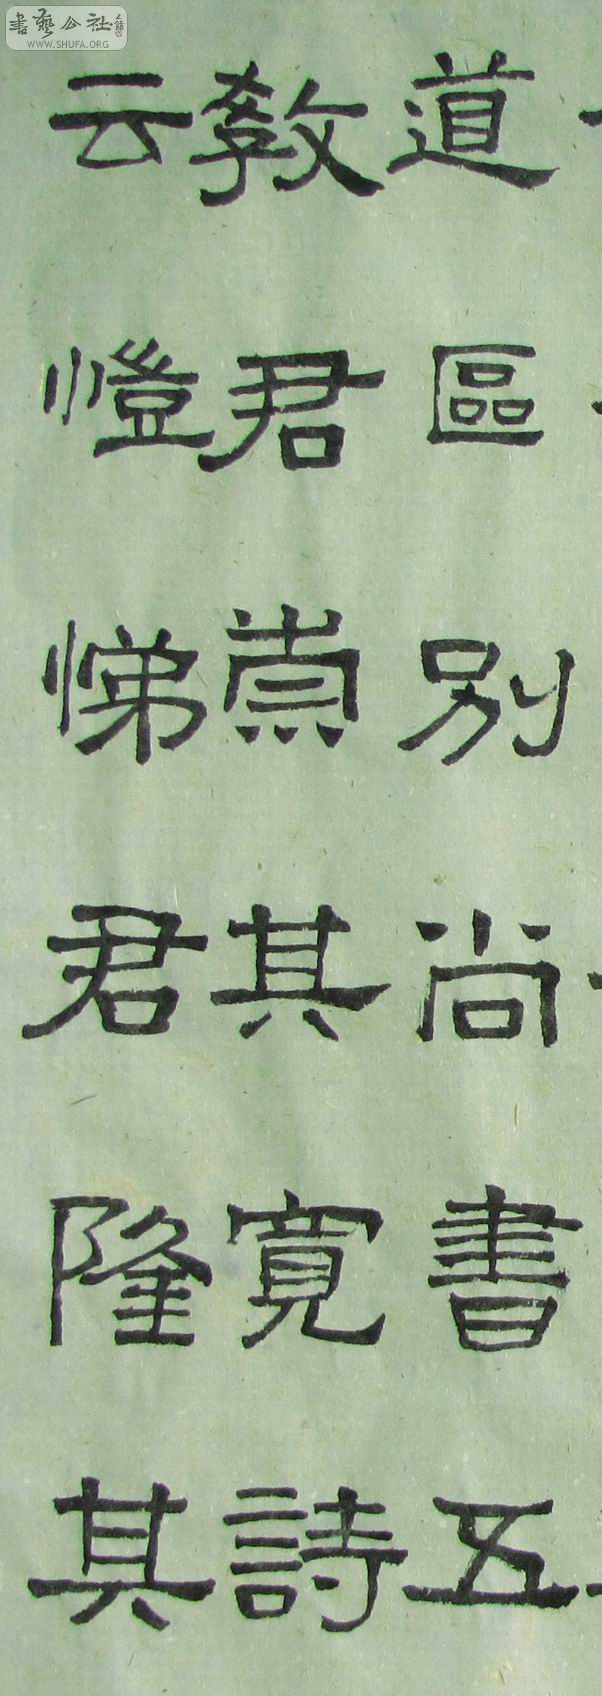 道區別尚書五
教君崇其寬詩
云愷悌君隆其
書藝公社
WWW.SHUFA.ORG